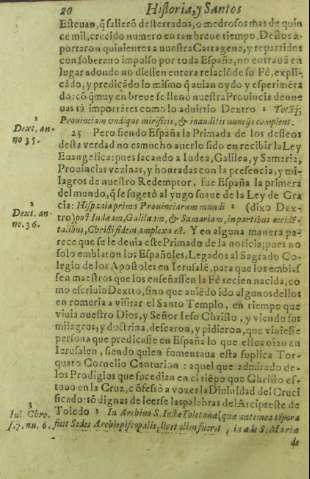 20 Historia, y Santos
Esteuan, q̃ salierō desterrados, o medrosos mas de quin
ce mil, crecido numero en tan breve tiempo. Destos a
portaron quinientos a nuestra Cartagena, y repartidos
con soberano impulso por toda España, no entrauā en
lugar adonde no diessen entera relaciō de su Fé, expli
cādo, y predicādo lo mismo q̃ auian oydo y esperimēta
do: cō q̃ muy en breve se llenó nuestra Provincia de nue
uas tā importātes como lo aduirtio Dextro
Provinciam undique missis, & inauditis nuncijs complent.
2
Dext. an-
no 35.
25 Pero siendo España la Primada de los desseos
desta verdad no es mucho auerlo sido en recibir la Ley
Euangelica: pues sacando a Iudea, Galilea, y Samaria,
Provincias vezinas, y honradas con la presencia, y mi-
lagros de nuestro Redemptor, fue España la primera
del mundo, q̃ se sugetó al yugo suaue de la Ley de Gra
cia: Hispania prima Provinciarum mundi (dixo Dex-
tro) post Iudæam, Galilæam, & Samariam, in partibus occidē-
talibus, Christi fidem amplexa est. Y en alguna manera pa-
3
Dext. an-
no. 36.
rece que se le deuia este Primado de la noticia; pues no
solo embiaron los Españoles, Legados al Sagrado Co-
legio de los Apostoles en Ierusalē, para que los embias
sen maestros que los enseñassen la Fé recien nacida, co
mo escriuio Dextro, sino que auiēdo ido algunos dellos
en romeria a visitar el Santo Templo, en tiempo que
viuia nuestro Dios, y Señor Iesu Christo, y viendo sus
milagros, y doctrina, desearon, y pidieron, que viniesse
persona que predicasse en España lo que ellos oian en
Ierusalen, siendo quien fomentaua esta suplica Tor-
quato Cornelio Centurion: aquel que admirado de-
los Prodigios que sucedian en el tiēpo que Christo es-
taua en la Cruz, cōfesó a vozes la Diuinidad del Cruci
ficado: sō dignas de leerse las palabras del Arcipreste de
Toledo 3 In Archivo S. Iustæ Toletanæ (quæ
3
Iul. Chro.
f.7. nu. 6.
fuit Sedes Archiepiscopalis, licet alim fuerit, in æde S. Maria
de